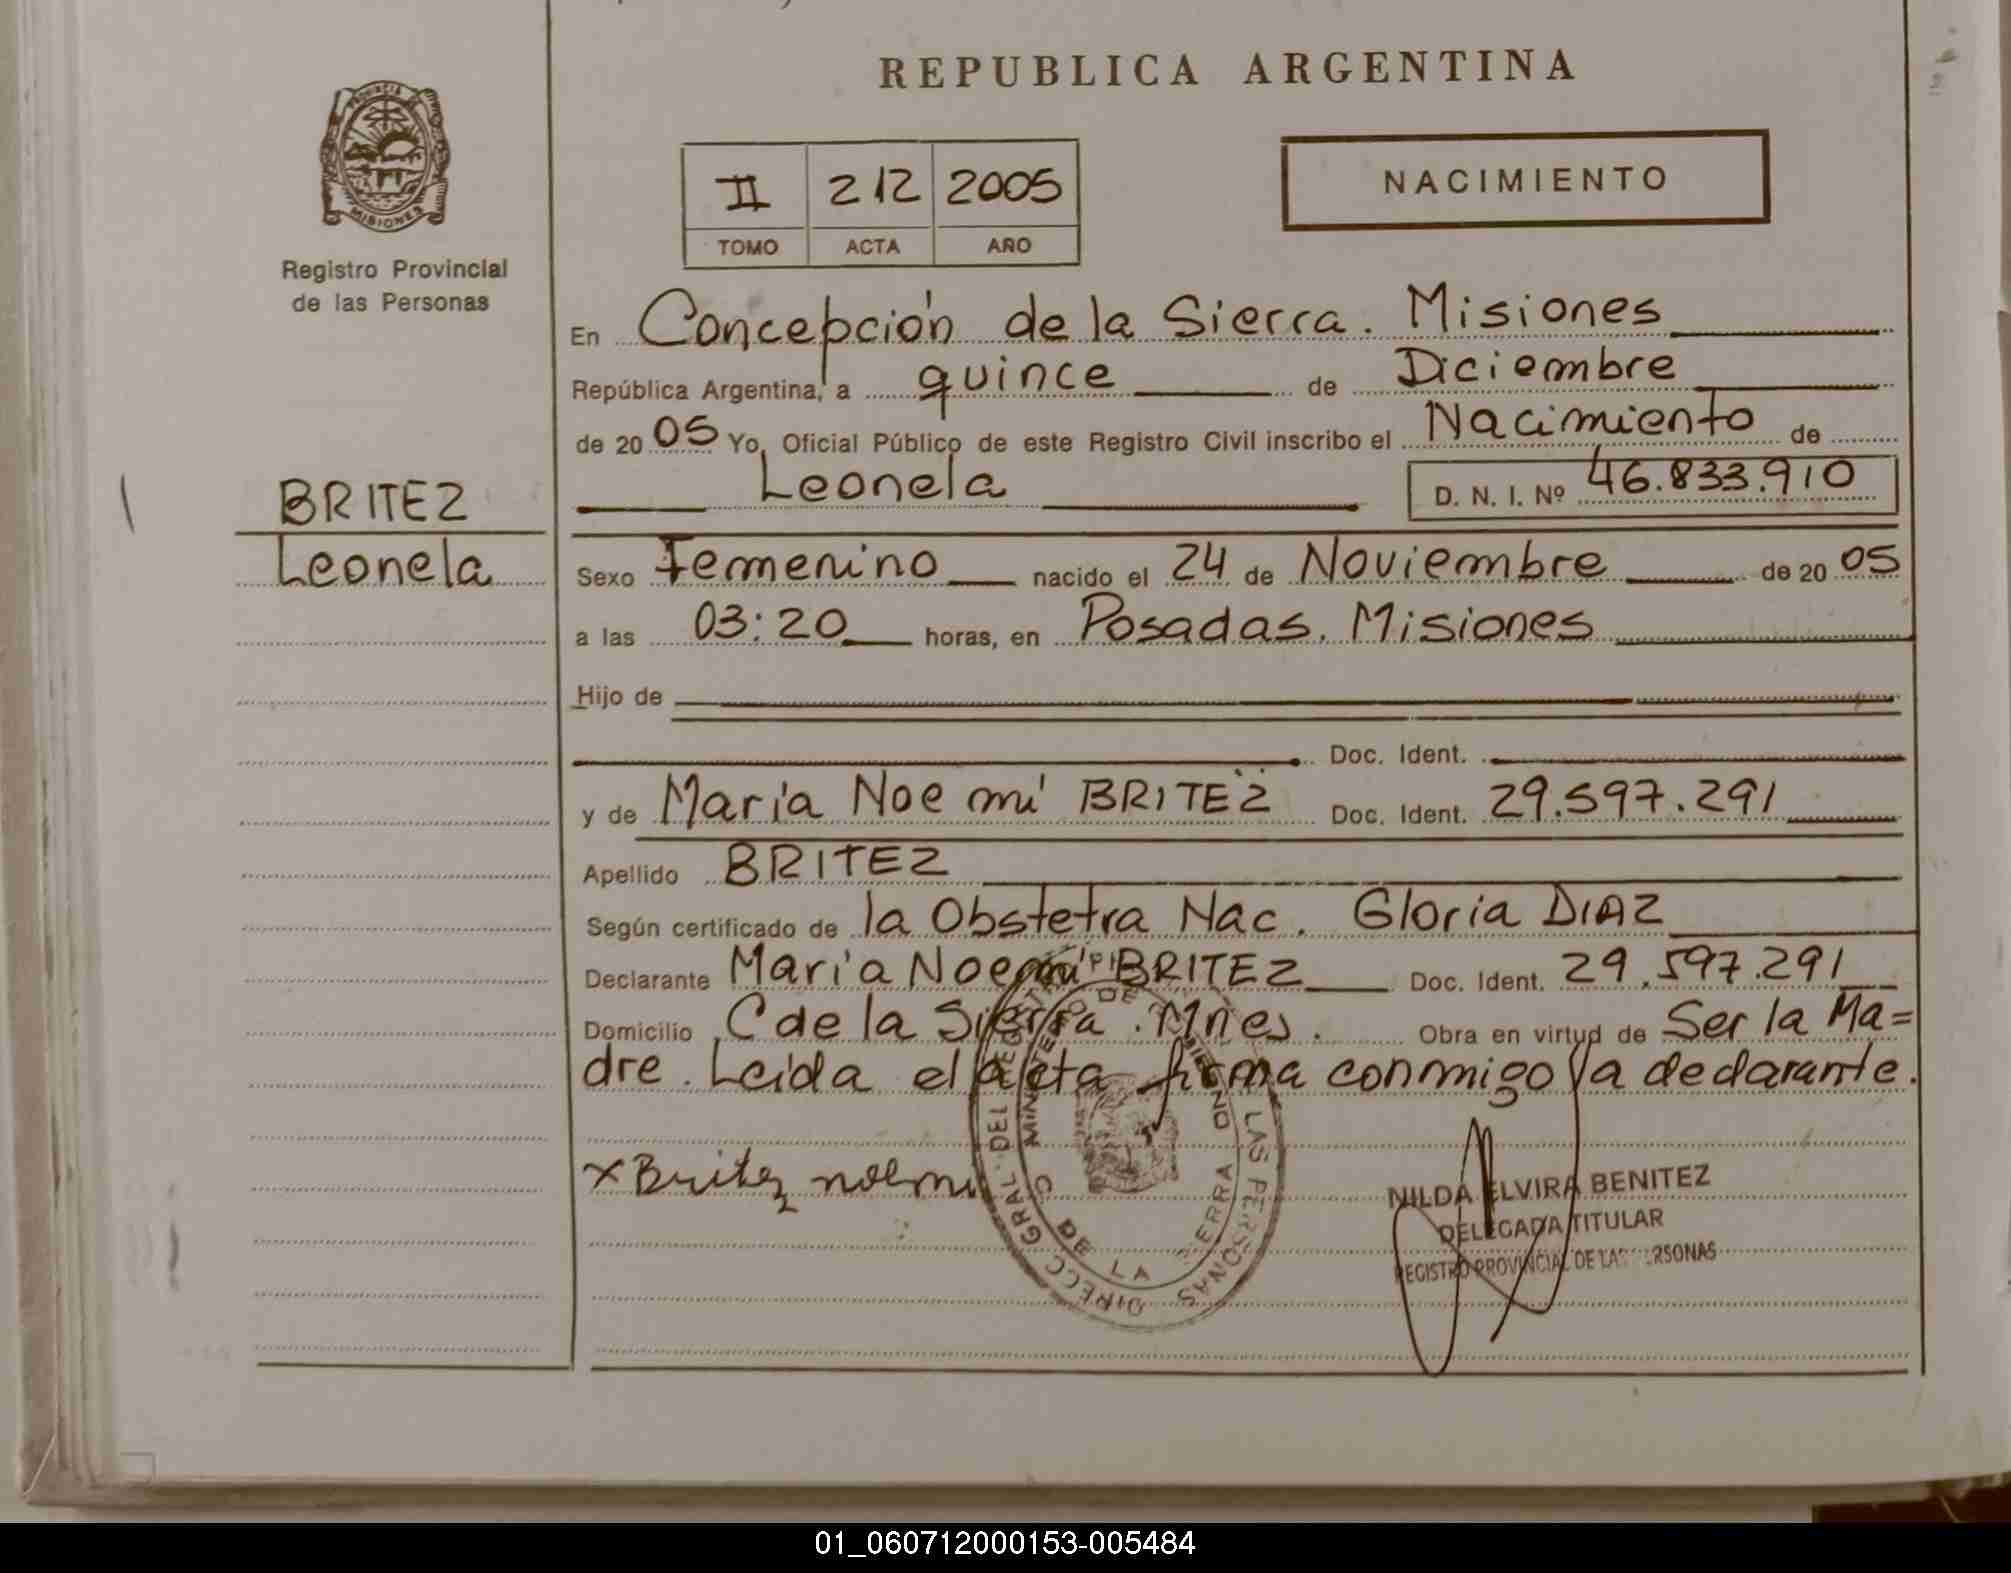 REPUBLICA ARGENTINA
PROVINCIA DE
MISIONES
Registro Provincial
de las Personas
II 212 2005
TOMO ACTA AÑO
NACIMIENTO
En Concepción de la Sierra. Misiones
República Argentina, a quince de Diciembre
de 20 05 Yo, Oficial Público de este Registro Civil inscribo el Nacimiento de
Leonela D. N. I. Nº 46.833.910
BRITEZ
Leonela
Sexo Femenino nacido el 24 de Noviembre de 20 05
a las 03:20 horas, en Posadas. Misiones
Hijo de
Doc. Ident.
y de María Noemí BRITEZ Doc. Ident. 29.597.291
Apellido BRITEZ
Según certificado de la Obstetra Nac. Gloria DIAZ
Declarante María Noemí BRITEZ Doc. Ident. 29.597.291
Domicilio C de la Sierra. Mnes. Obra en virtud de Ser la Ma=
dre. Leída el acta firma conmigo la declarante.
x Britez noemi
DIRECC GRAL DEL LAS PERSONAS
LA SIERRA
NILDA ELVIRA BENITEZ
DELEGADA TITULAR
REGISTRO PROVINCIAL DE LAS PERSONAS
01_060712000153-005484